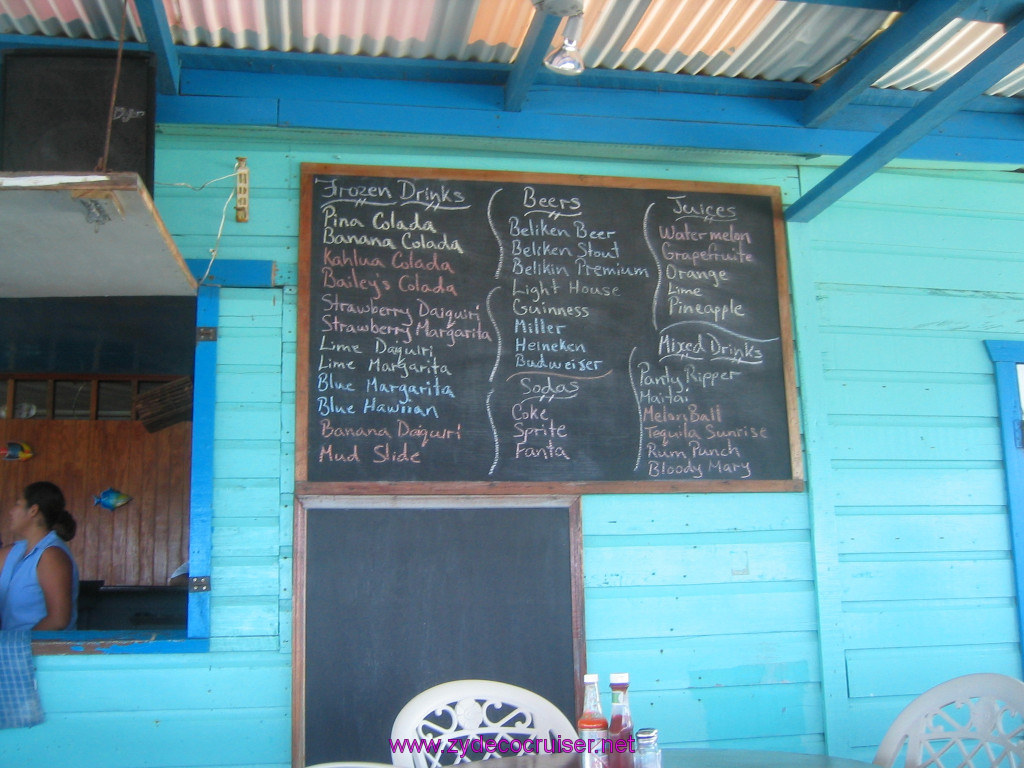 Frozen Drinks
Pina Colada
Banana Colada
Kahlua Colada
Bailey's Colada
Strawberry Daiquiri
Strawberry Margarita
Lime Daiquiri
Lime Margarita
Blue Margarita
Blue Hawiian
Banana Daiquiri
Mud Slide
Beers
Beliken Beer
Beliken Stout
Belikin Premium
Light House
Guinness
Miller
Heineken
Budweiser
Sodas
Coke
Sprite
Fanta
Juices
Watermelon
Grapefruite
Orange
Lime
Pineapple
Mixed Drinks
Panty Ripper
Maitai
Melon Ball
Tequila Sunrise
Rum Punch
Bloody Mary
www.zydecocruiser.net